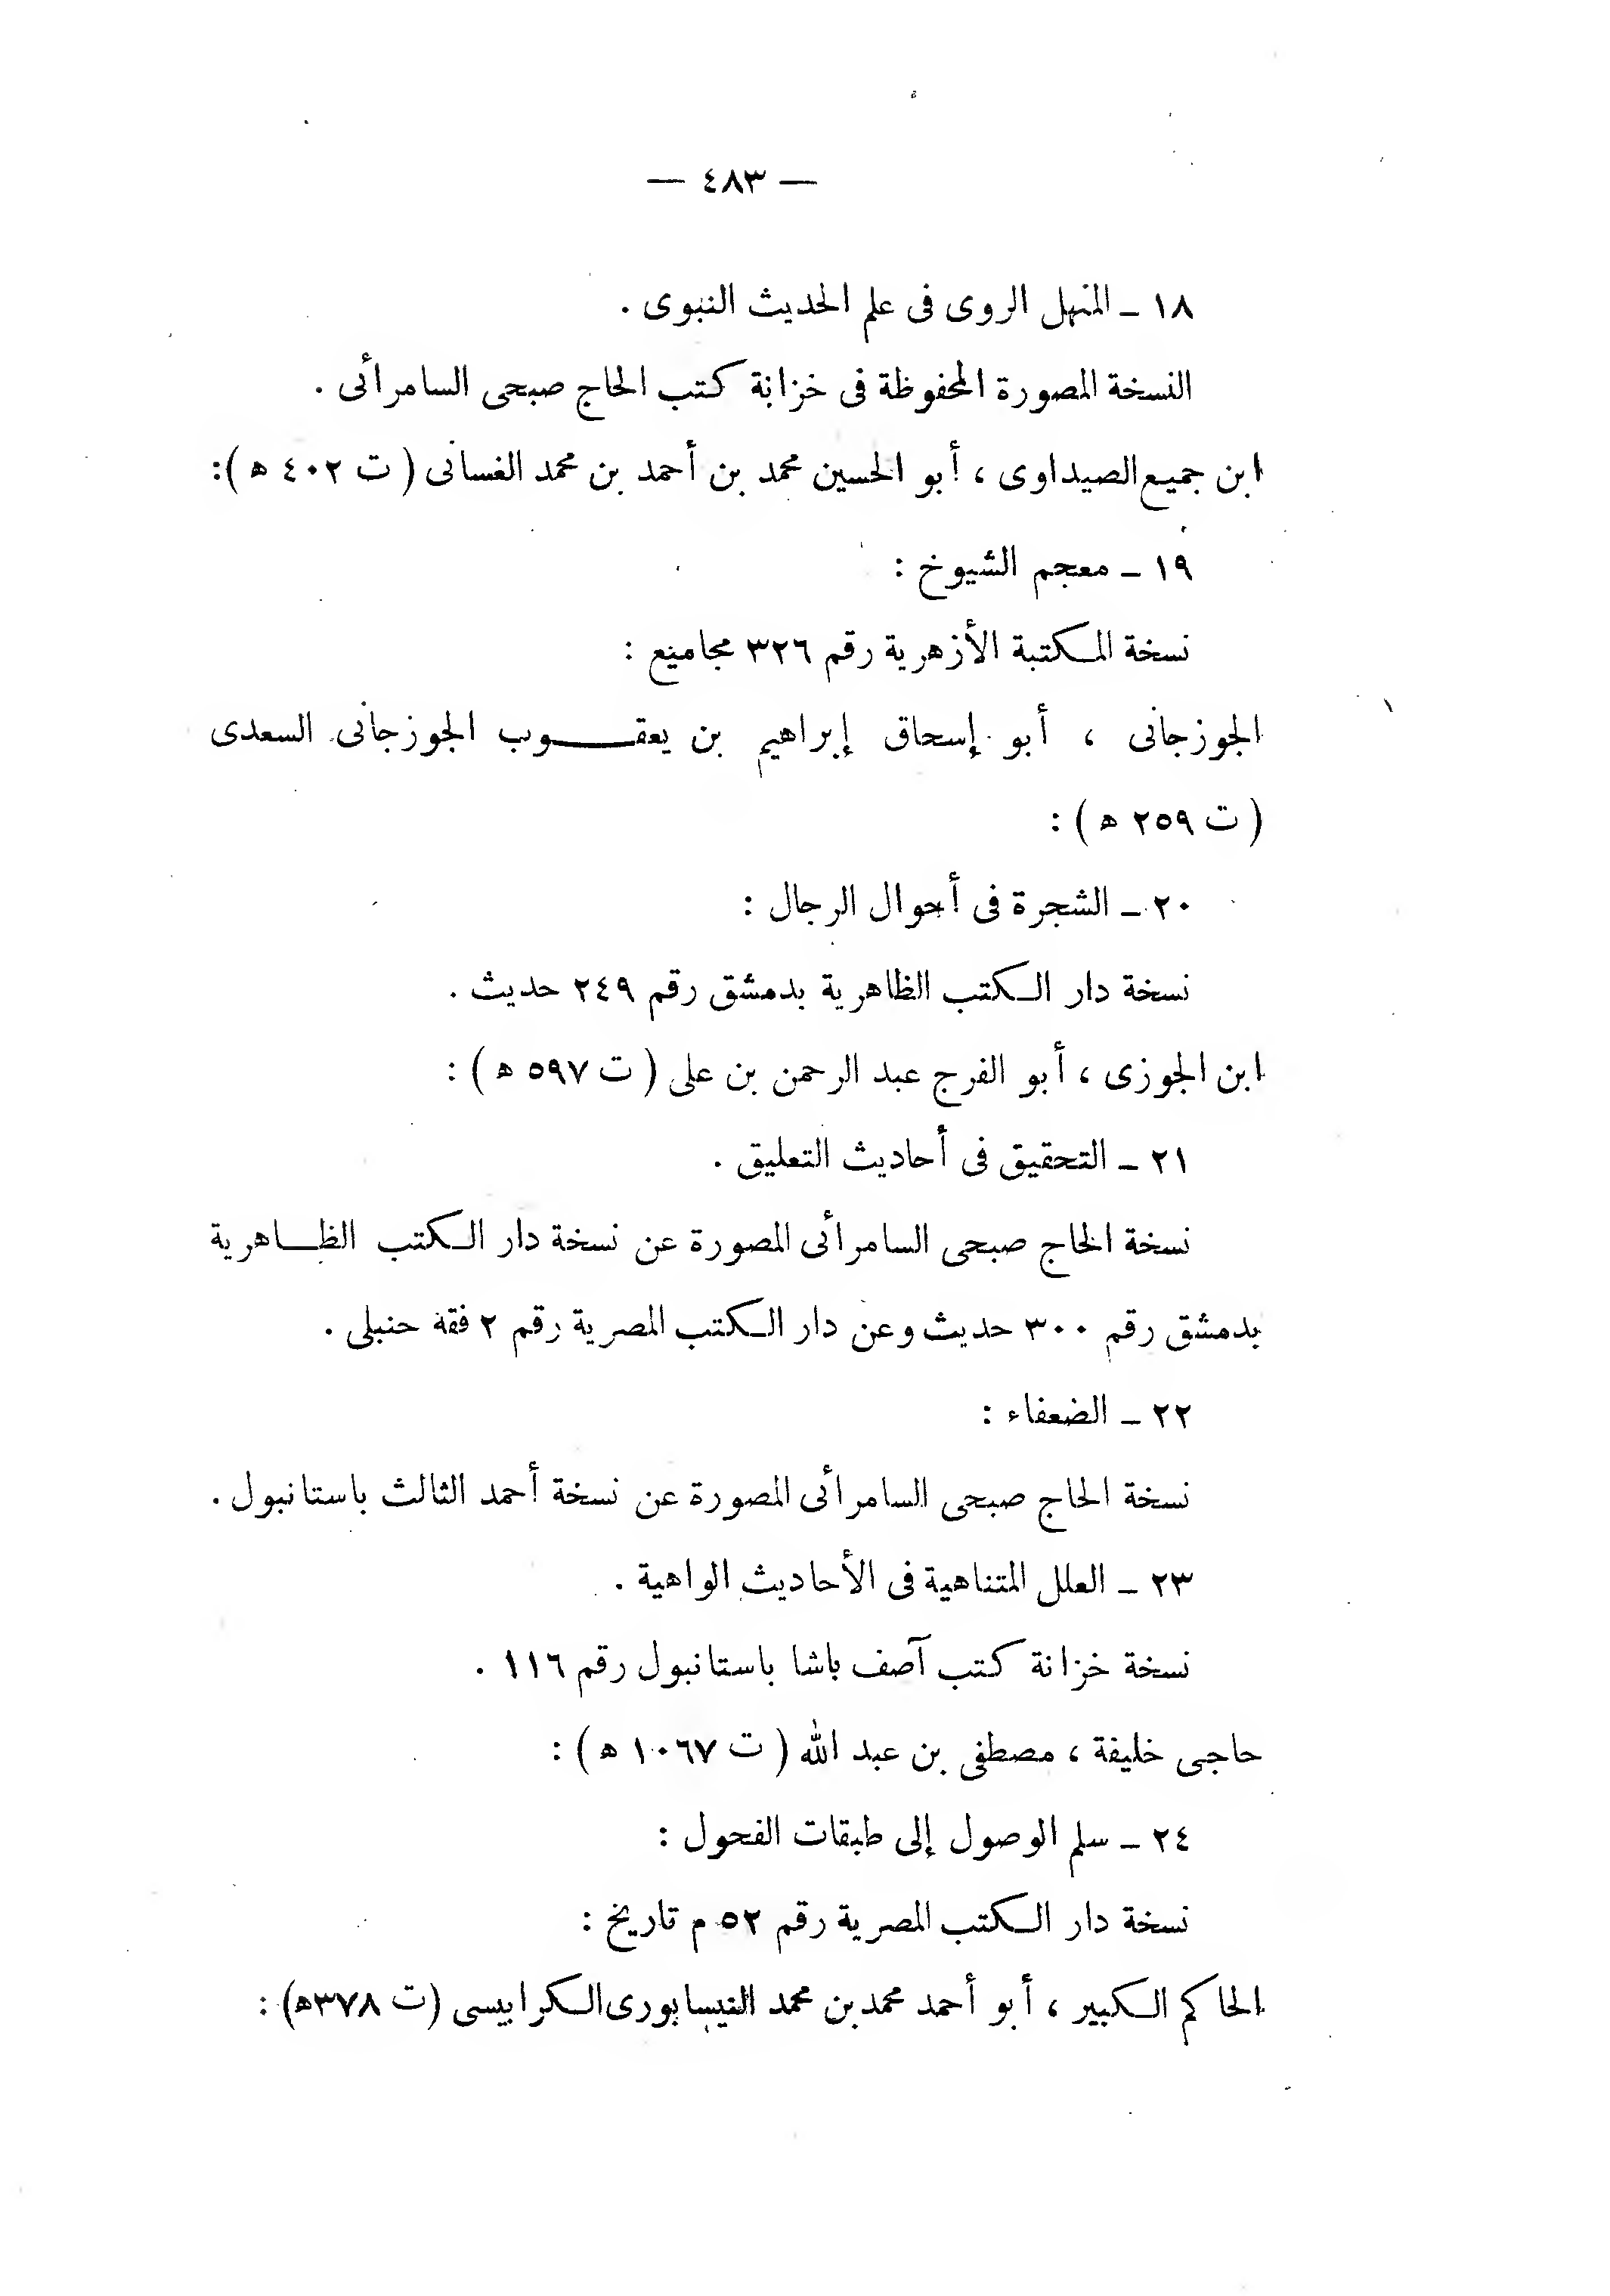 — ٤٨٣ —
١٨ ـ المنهل الروى فى علم الحديث النبوى .
النسخة المصورة المحفوظة فى خزانة كتب الحاج صبحى السامرأئى .
ابن جميع الصيداوى ، أبو الحسين محمد بن أحمد بن محمد الغسانى ( ت ٤٠٢ ه ):
١٩ ـ معجم الشيوخ :
نسخة المكتبة الأزهرية رقم ٣٢٦ مجاميع :
الجوزجانى ، أبو إسحاق إبراهيم بن يعقوب الجوزجانى السعدى
( ت ٢٥٩ ه ) :
٢٠ ـ الشجرة فى أحوال الرجال :
نسخة دار الكتب الظاهرية بدمشق رقم ٢٤٩ حديث .
ابن الجوزى ، أبو الفرج عبد الرحمن بن على ( ت ٥٩٧ ه ) :
٢١ ـ التحقيق فى أحاديث التعليق .
نسخة الحاج صبحى السامرأئى المصورة عن نسخة دار الكتب الظاهرية
بدمشق رقم ٣٠٠ حديث وعن دار الكتب المصرية رقم ٢ فقه حنبلى .
٢٢ ـ الضعفاء :
نسخة الحاج صبحى السامرأئى المصورة عن نسخة أحمد الثالث باستانبول .
٢٣ ـ العلل المتناهية فى الأحاديث الواهية .
نسخة خزانة كتب آصف باشا باستانبول رقم ١١٦ .
حاجى خليفة ، مصطفى بن عبد الله ( ت ١٠٦٧ ه ) :
٢٤ ـ سلم الوصول إلى طبقات الفحول :
نسخة دار الكتب المصرية رقم ٥٢ م تاريخ :
الحاكم الكبير ، أبو أحمد محمد بن محمد النيسابورى الكرابيسى (ت ٣٧٨ه) :